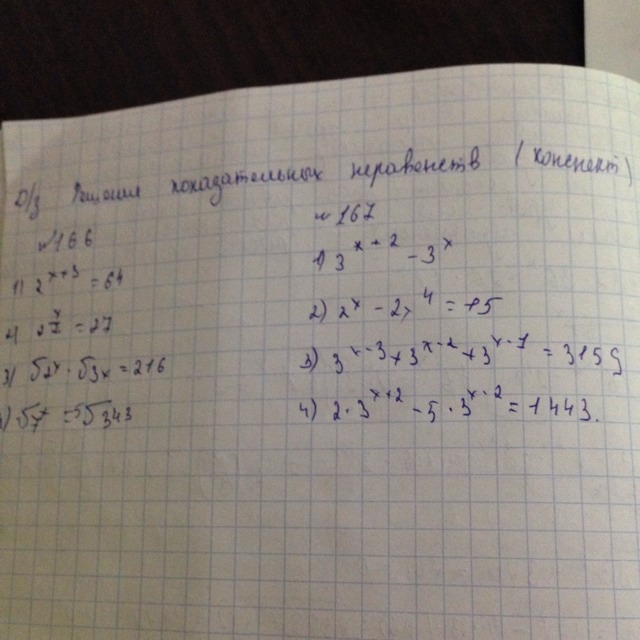 Д/з Решение показательных неравенств (конспект)
№166
1) 2^{x+3} = 64
2) 27^x = 27
3) √2^x · √3^x = 216
4) √7^x = √343
№167
1) 3^{x+2} - 3^x
2) 2^x - 2^{x-4} = 15
3) 3^{x-3} + 3^{x-2} + 3^{x-1} = 3159
4) 2 · 3^{x+2} - 5 · 3^{x-2} = 1443.